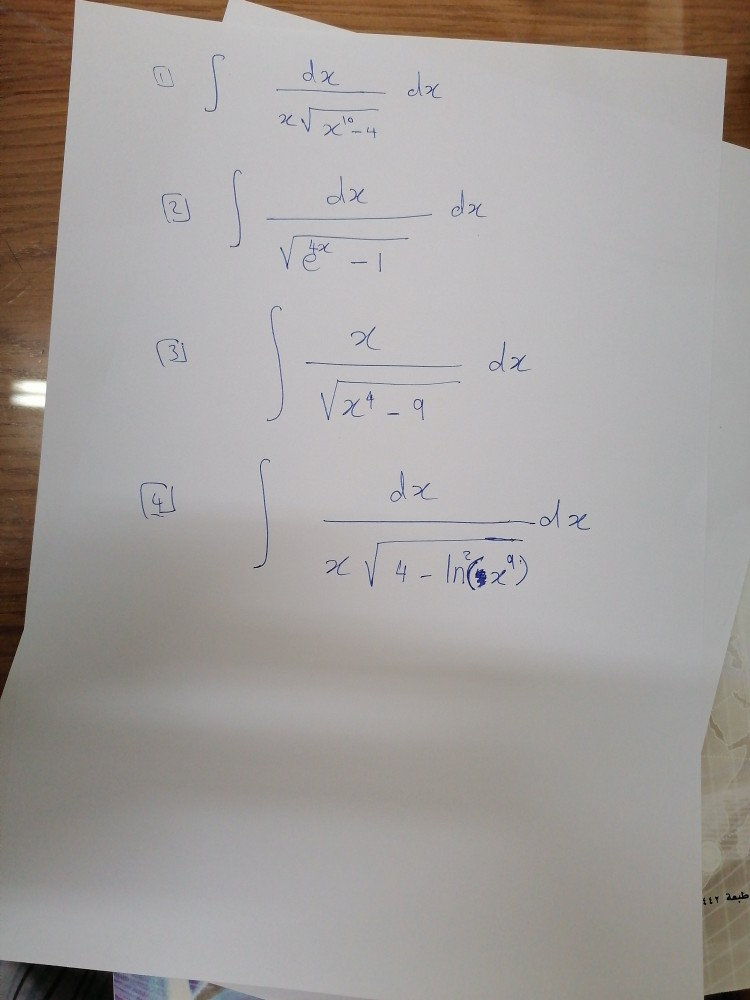 1 ∫ dx / x√(x^10 - 4) dx
2 ∫ dx / √(e^4x - 1) dx
3 ∫ x / √(x^4 - 9) dx
4 ∫ dx / x√(4 - ln^2(x^9)) dx
طبعة ٤٤٢